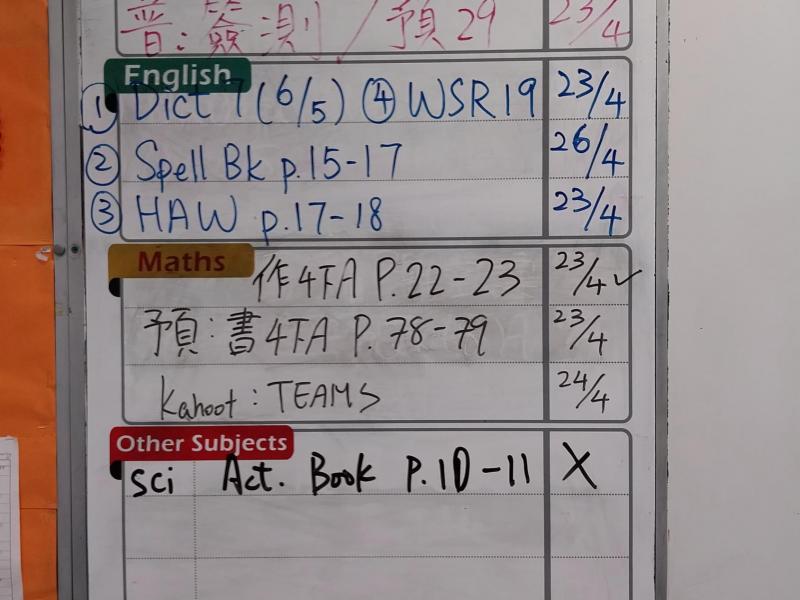 普:簽測/預29 23/4
English
① Dict 7 (6/5) ④ WSR19 23/4
② Spell Bk p.15-17 26/4
③ HAW p.17-18 23/4
Maths
作4下A P.22-23 23/4 ✓
預:書4下A P.78-79 23/4
Kahoot: TEAMS 24/4
Other Subjects
sci Act. Book P.10-11 X